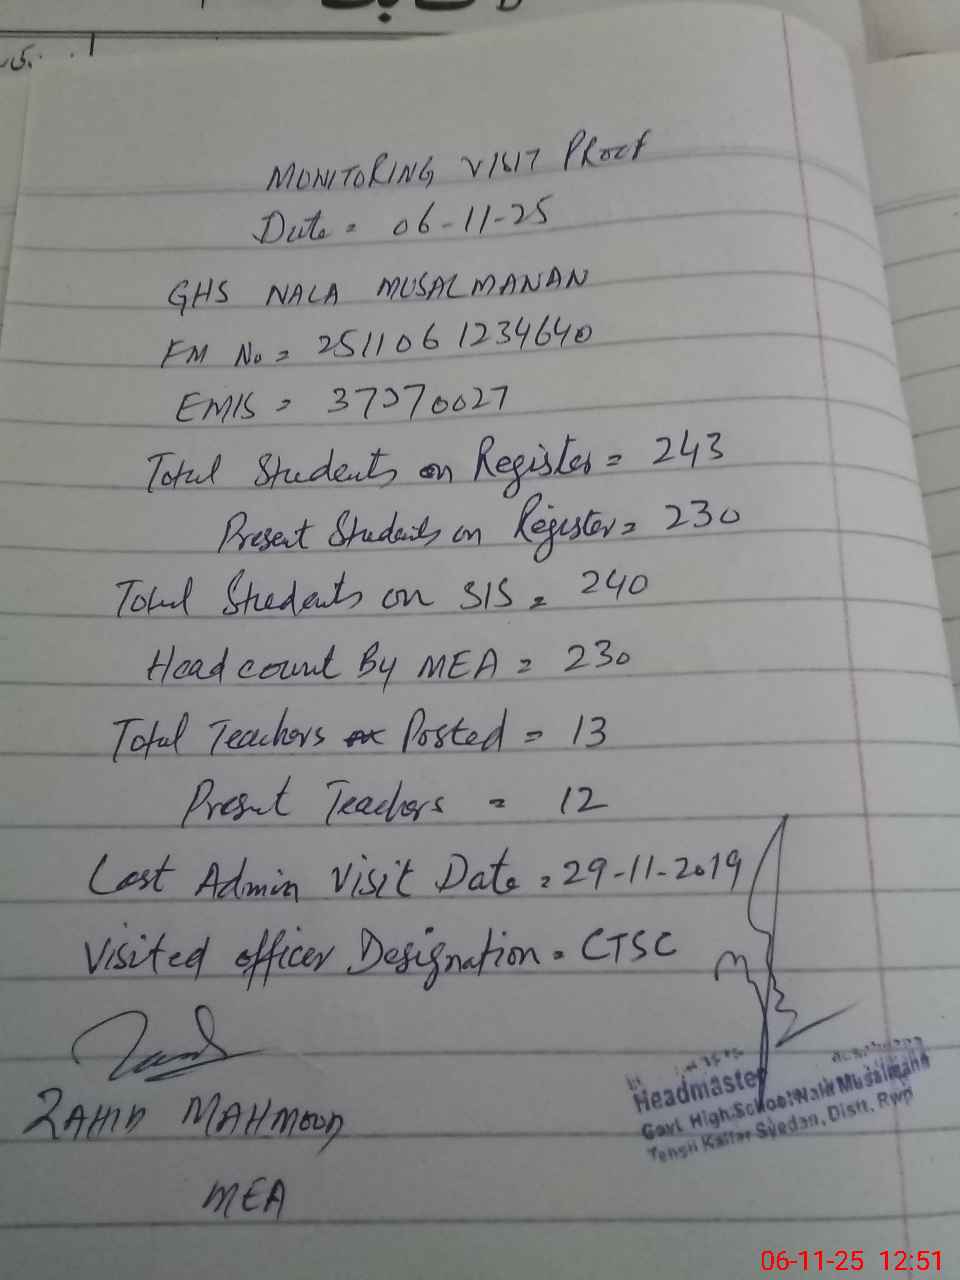 MONITORING VISIT PROOF
Date = 06-11-25
GHS NALA MUSALMANAN
FM No = 2511061234640
EMIS = 37370027
Total Students on Register = 243
Present Students on Register = 230
Total Students on SIS = 240
Head count By MEA = 230
Total Teachers Posted = 13
Present Teachers = 12
Last Admin Visit Date = 29-11-2019
Visited officer Designation = CTSC
ZAHID MAHMOOD
MEA
Headmaster
Govt. High School Nala Musalmana
Tehsil Kallar Syedan, Distt. Rwp
06-11-25 12:51